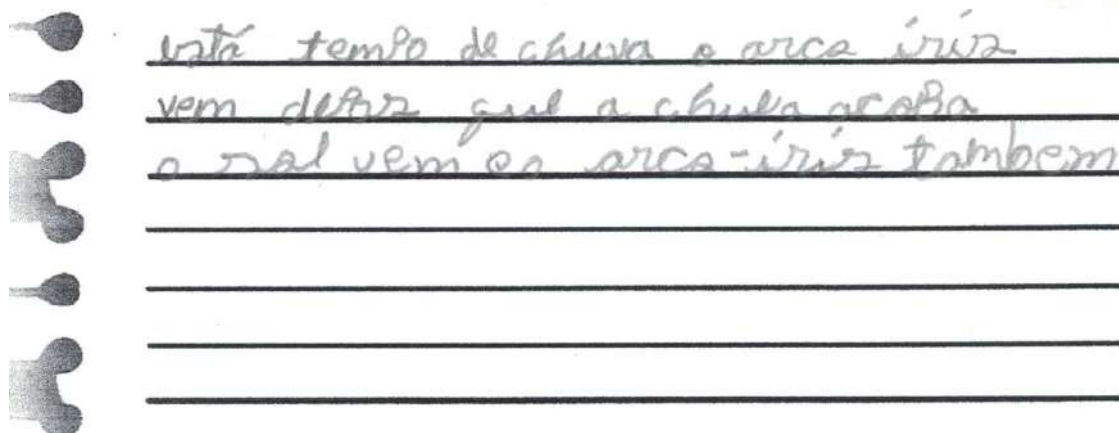 está tempo de chuva o arco íris
vem depois que a chuva acaba
o sol vem eo arco-íris tambem